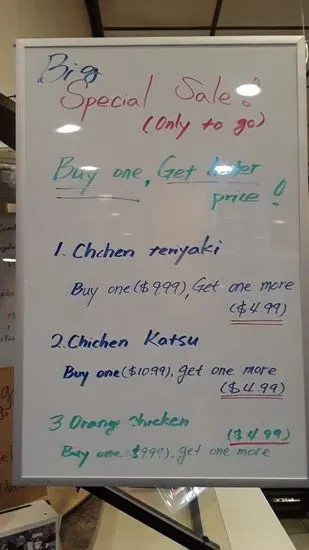 Big
Special Sale!
(Only to go)
Buy one, Get better
price!
1. Chchen teriyaki
Buy one ($9.99), Get one more
($4.99)
2. Chichen Katsu
Buy one ($10.99), get one more
($4.99)
3 Orange chicken
($4.99)
Buy one $9.99), get one more